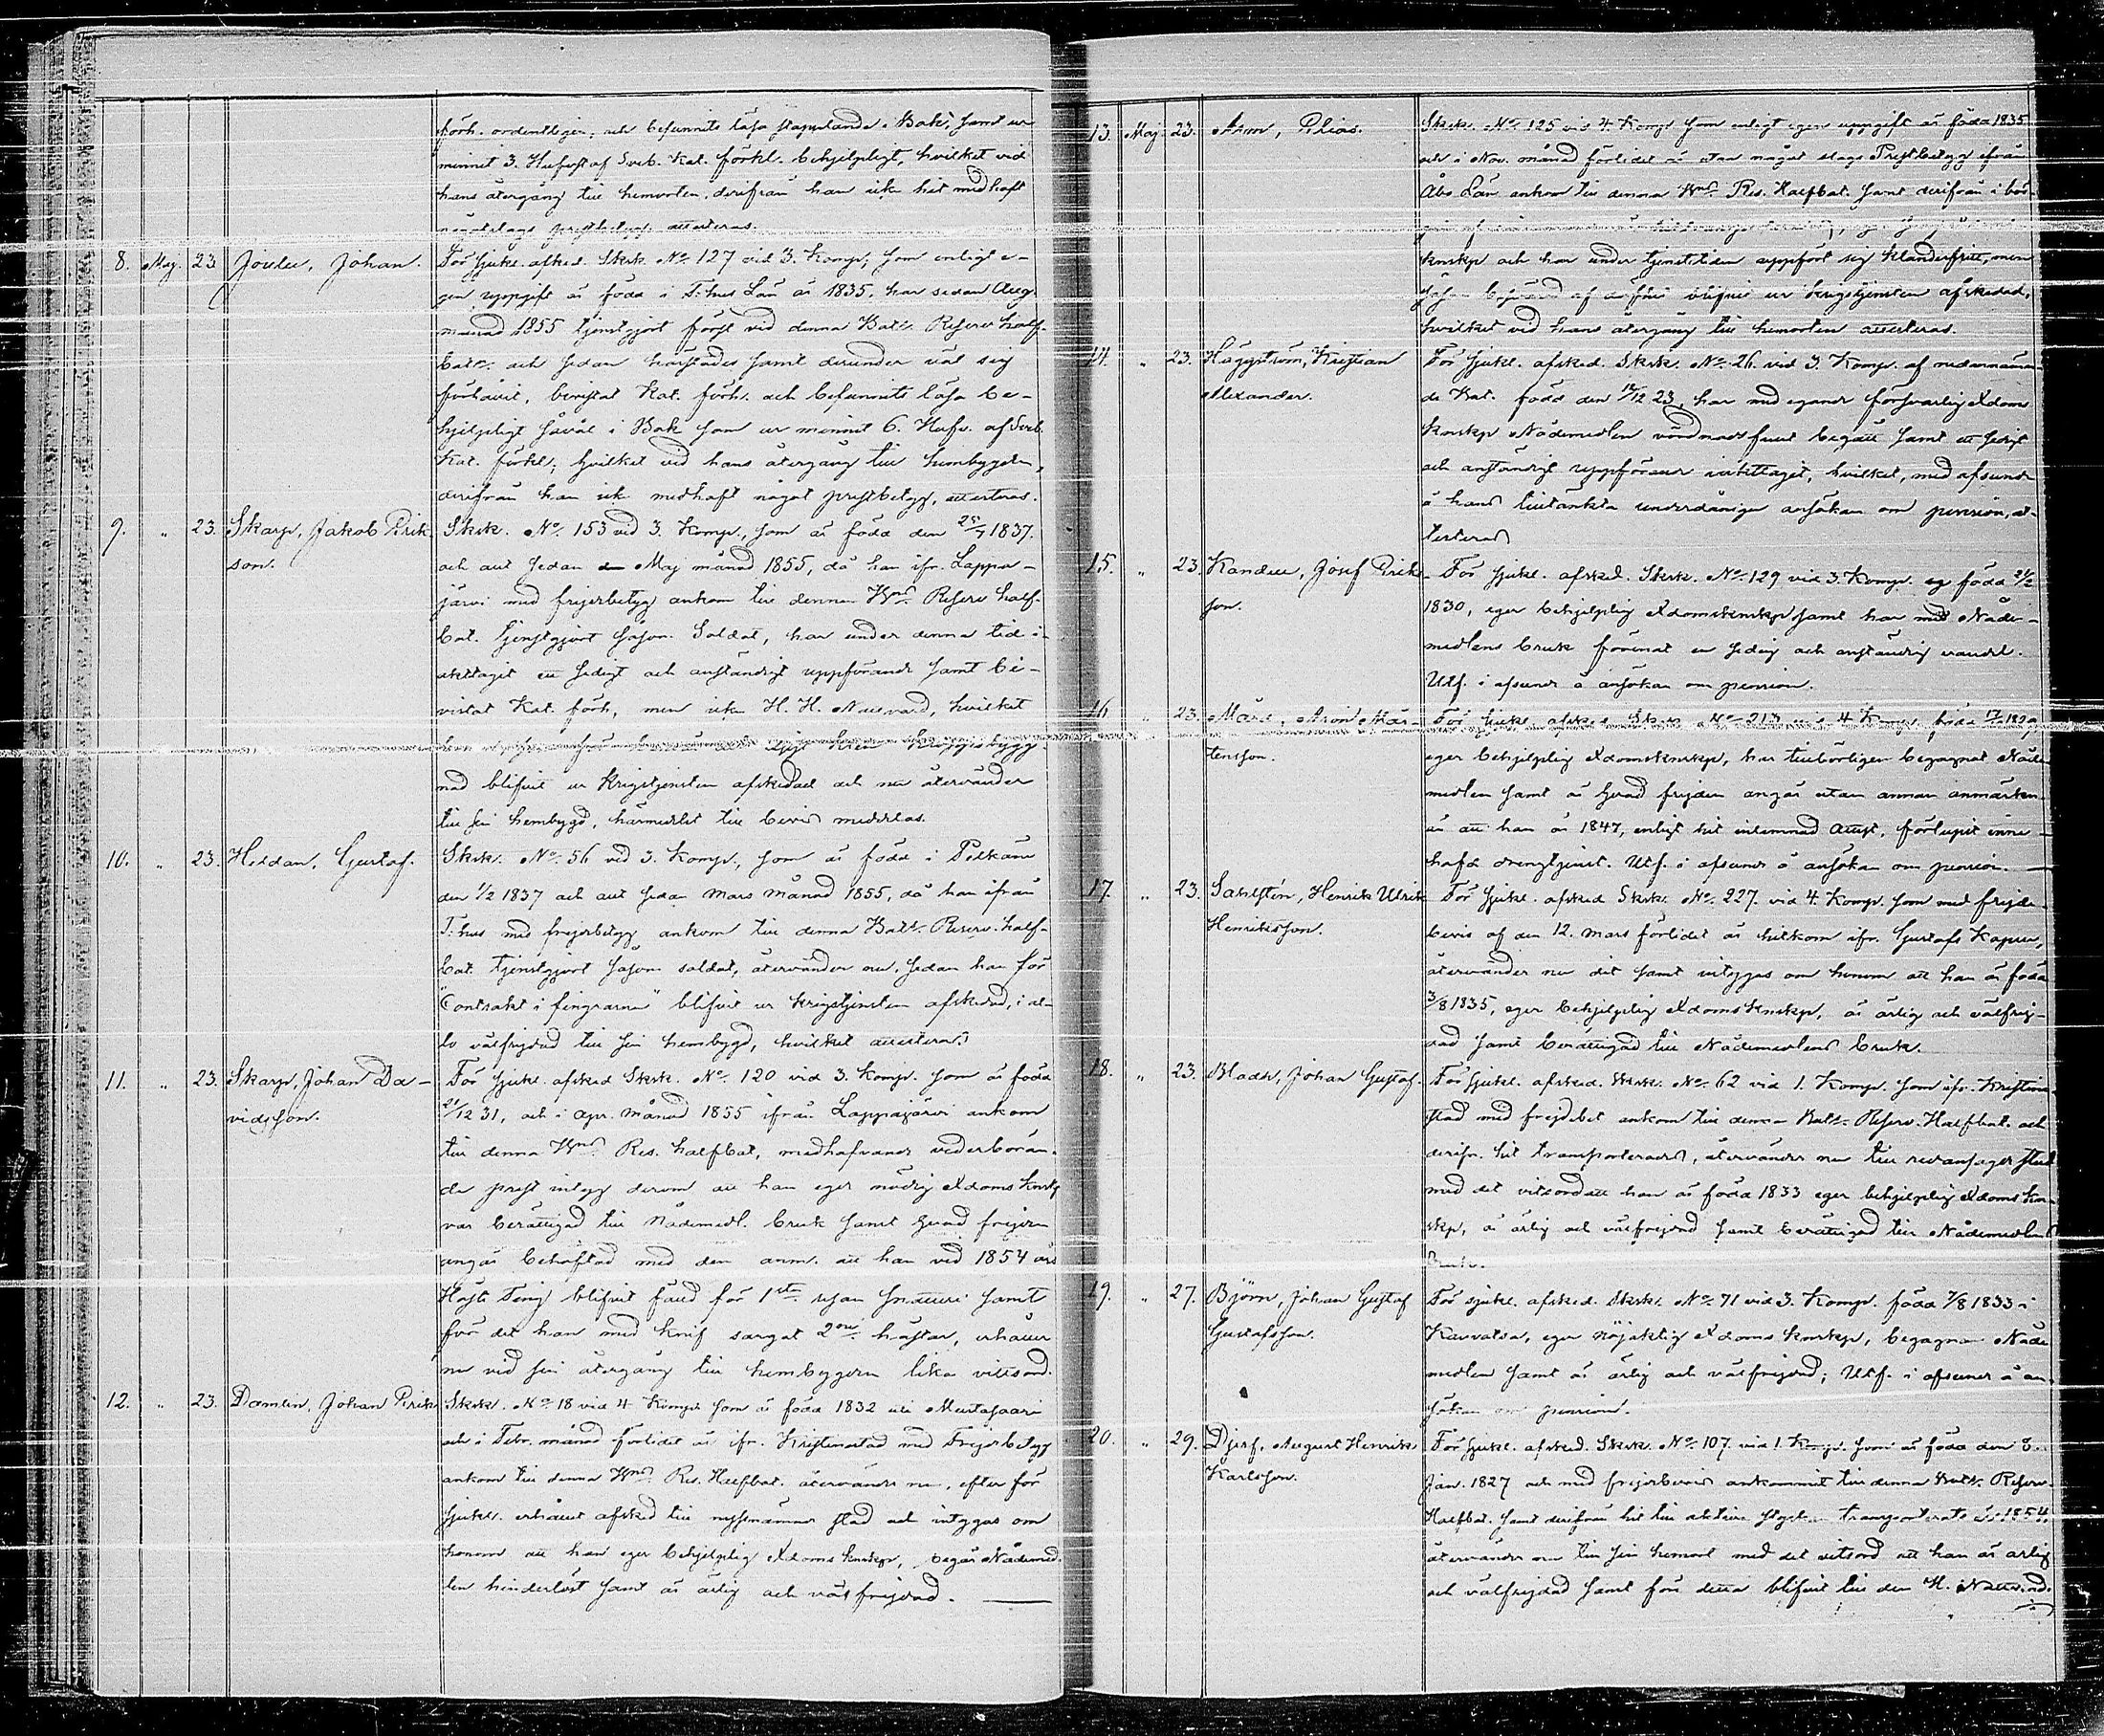 förh. ordentligen, och befunnits läsa stapplande i Bok, samt ur
minnet 3. Hufvst af Sveb. Kat. förkl. behjelpligt, hvilket vid
hans återgång till hemorten, derifrån han icke hit medhaft
något slags prestbetyg, attesteras.
8. Maj. 23 Joutu, Johan. För sjukl. afsked. Skrk. No 127 vid 3. Komp, som enligt e-
gen uppgift är född i T:hus Län år 1835, har sedan Aug.
månad 1855 tjenstgjort först vid denna Batls. Reserv half-
batn. och sedan härstädes samt derunder väl sig
förhållit, bevistat Kat. förh. och befunnits läsa be-
hjelpligt såväl i Bok som ur minnet 6. Hufv. af Sveb.
Kat. förkl; hvilket vid hans återgång till hembygden,
derifrån han icke medhaft något prestbetyg, attesteras.
9. " 23. Skarp, Jakob Erik Skrk. No 153 vid 3. Komp., som är född den 25/7 1837.
son. och allt sedan Maj månad 1855, då han ifr. Lappa-
järvi med frejdebetyg ankom till denna Btns. Reserv half-
bat. tjenstgjort såsom Soldat, har under denna tid i-
akttagit ett sedigt och anständigt uppförande samt be-
vistat Kat. förh, men icke H. H. Nattvard, hvilket
kroppsbygg-
nad blifvit ur Krigstjensten afskedad och nu återvänder
till sin hembygd, härmedelst till bevis meddelas.
10. " 23. Heldan, Gustaf. Skrk. No 56 vid 3. Komp., som är född i Pelkäne
den 1/2 1837 och allt sedan Mars månad 1855, då han ifrån
T:hus med frejdebetyg ankom till denna Batls. Reserv. half-
bat. tjenstgjort såsom soldat, återvänder nu, sedan han för
"Contrakt i fingrarne" blifvit ur krigstjensten afskedad, i al-
lo välfrejdad till sin hembygd, hvilket attesteras.
11. " 23. Skarp, Johan Da- För sjukl. afsked Skrk. No 120 vid 3. Komp. som är född
vidsson. 21/12 31, och i Apr. månad 1855 ifrån Lappajärvi ankom
till denna Btns. Res. halfbat, medhafvande vederböran-
de prest intyg derom att han eger nödig Xdoms knskp
var berättigad till Nådemedl. bruk samt hvad frejden
angår behäftad med den anm. att han vid 1854 års
Höste Ting blifvit fälld för 1sta resan snatteri samt
för det han med knif sargat 2ne hästar, erhåller
nu vid sin återgång till hembygden lika vittsord.
12. " 23. Domlin, Johan Erik Skrk. No 18 vid 4 Komp. som är född 1832 uti Mustasaari
och i Febr. månad förlidet år ifr. Kristinestad med Frejdebetyg
ankom till denna Btns. Res. Halfbat. återvänder nu, efter för
sjukl. erhållet afsked till nyssnämnde stad och intygas om
honom att han eger behjelplig Xdoms knskp, begår Nådemed-
len hinderlöst samt är ärlig och välfrejdad.
13. Maj 23. Arm, Elias. Skrk. No 125 vid 4. Komp som enligt egen uppgift är född 1835
och i Nov. månad förlidet år utan något slags Prestbetyg ifrån
Åbo Län ankom till denna Btns. Res. Halfbat. samt derifrån i bör-
knskp och har under tjenstetiden uppfört sig klanderfritt, men
blifvit ur krigstjensten afskedad,
hvilket vid hans återgång till hemorten attesteras.
14. " 23. Häggström, Kristian För sjukl. afsked. Skrk. No 26. vid 3. Komp. af nedannämn-
Alexander. de Bat. född den 12/12 23, har med egande försvarlig Xdoms
knskp Nådemedlen vördnadsfullt begått samt ett sedigt
och anständigt uppförande iakttagit, hvilket, med afseende
å hans tilltänkta underdåniga ansökan om pension, at-
testeras
15. " 23. Kandell, Josef Erik- För sjukl. afsked. Skrk. No 129 vid 3. Komp. född 21/2
son. 1830, eger behjelplig Xdomsknskp samt har med Nåde-
medlens bruk förenat en sedig och anständig vandel.
Utf. i afseende å ansökan om pension.
16 " 23. Mård, Aron Mår- För sjukl. afsked Skrk No 213 vid 4 Komp. född 17/ 1829
tensson. eger behjelplig Xdomsknskp, har tillbörligen begagnat Nåde-
medlen samt är hvad frejden angår utan annan anmärkn.
än att han år 1847, enligt hit inlemnad attest, förlupit inne-
hafd drengtjenst. Utf. i afseende å ansökan om pension.
17. " 23. Sahlstén, Henrik Ulrik För sjukl. afsked Skrk. No 227. vid 4. Komp. som med frejde-
Henriksson. bevis af den 12. Mars förlidet år hitkom ifr. Gustafs Kapell,
återvänder nu dit samt intygas om honom att han är född
3/8 1835, eger behjelplig Xdoms knskp, är ärlig och välfrej-
dad samt berättigad till Nådemedlens bruk.
18. " 23. Bladh, Johan Gustaf. För sjukl. afsked. Skrk. No 62 vid 1. Komp. som ifr. Kristine-
stad med frejdebet ankom till denna Batls. Reserv. Halfbat. och
derifr. hit transporterades, återvänder nu till nedansagde stad
med det vitsord att han är född 1833 eger behjelplig Xdoms kn-
skp, är ärlig och välfrejdad samt berättigad till Nådemedlens
Bruk.
19. " 27. Björn, Johan Gustaf För sjukl. afsked. Skrk. No 71 vid 3. Komp. född 7/8 1833 i
Gustafsson. Karvatsa, eger nöjaktig Xdoms knskp, begagnar Nåde-
medlen samt är ärlig och välfrejdad; Utf. i afseende å an-
sökan om pension.
20. " 29. Djerf, August Henrik För sjukl. afsked. Skrk. No 107 vid 1. Komp. som är född den 8.
Karlsson. Jan. 1827 och med frejdebevis ankommit till denna Batls. Reserv-
Halfbat. samt derifrån hit till aktiva styrkan transporterats år 1854,
återvänder nu till sin hemort med det vitsord att han är ärlig
och välfrejdad samt före detta blifvit till den H. Nattvard